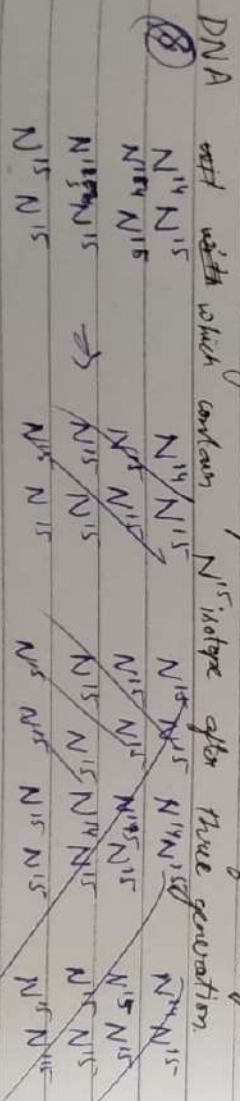 DNA which contain N¹⁵ isotope after three generation.
⑧ N¹⁴ N¹⁵ N¹⁴ N¹⁵ N¹⁵ N¹⁴ N¹⁵ N¹⁵
N¹⁴ N¹⁵ N¹⁵ N¹⁵ N¹⁵ N¹⁵ N¹⁵ N¹⁵ N¹⁵
N¹⁵ ⇒ N¹⁵ N¹⁵ N¹⁵ N¹⁵ N¹⁴ N¹⁵ N¹⁵ N¹⁵
N¹⁵ N¹⁵ N¹⁵ N¹⁵ N¹⁵ N¹⁵ N¹⁵ N¹⁵ N¹⁵ N¹⁵